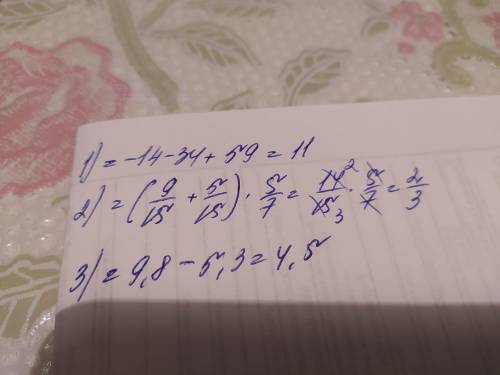 1) = -14 - 34 + 59 = 11
2) = (9/15 + 5/15) · 5/7 = 14/15 2 3 · 5/7 = 2/3
3) = 9,8 - 5,3 = 4,5